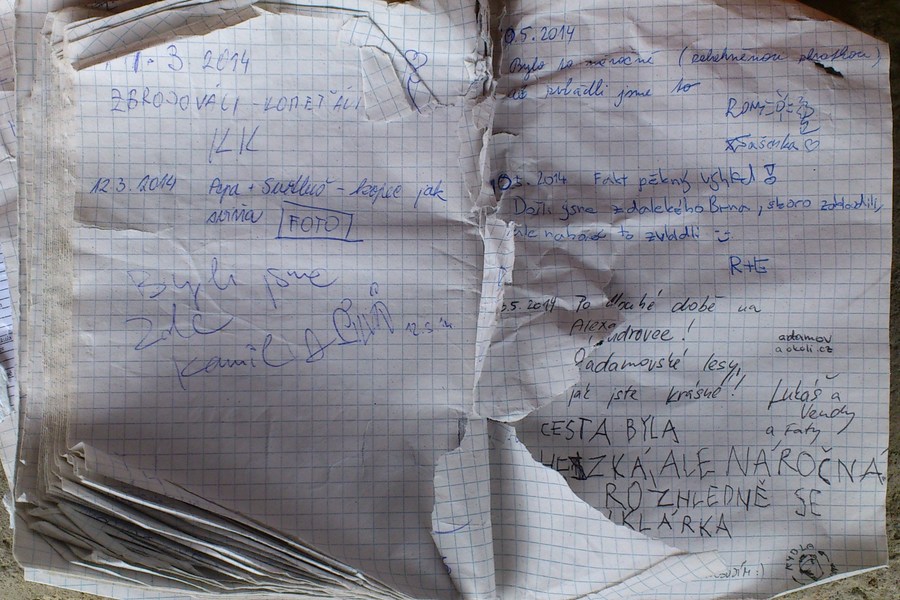 1. 3 2014
ZBROJOVÁCI - KOMEŤÁCI
KK
12.3.2014 Pepa + - kopec jak
svina FOTO
Byli jsme
Zde
Kamil 12.5.14
0.5.2014
Bylo to náročné (
zvládli jsme to
ROMČ
Sašenka ♡
10.5.2014 Fakt pěkný výhled!
Došli jsme z dalekého Brna, skoro zabloudili,
ale nahoru to zvládli
R+E
.5.2014 Po dlouhé době na
Alexandrovce!
Ó adamovské lesy,
jak jste krásné!!
adamov
aokoli.cz
Lukáš a
Vendy
a Faty
CESTA BYLA
HEZKÁ, ALE NÁROČNÁ
ROZHLEDNĚ SE
KLÁRKA